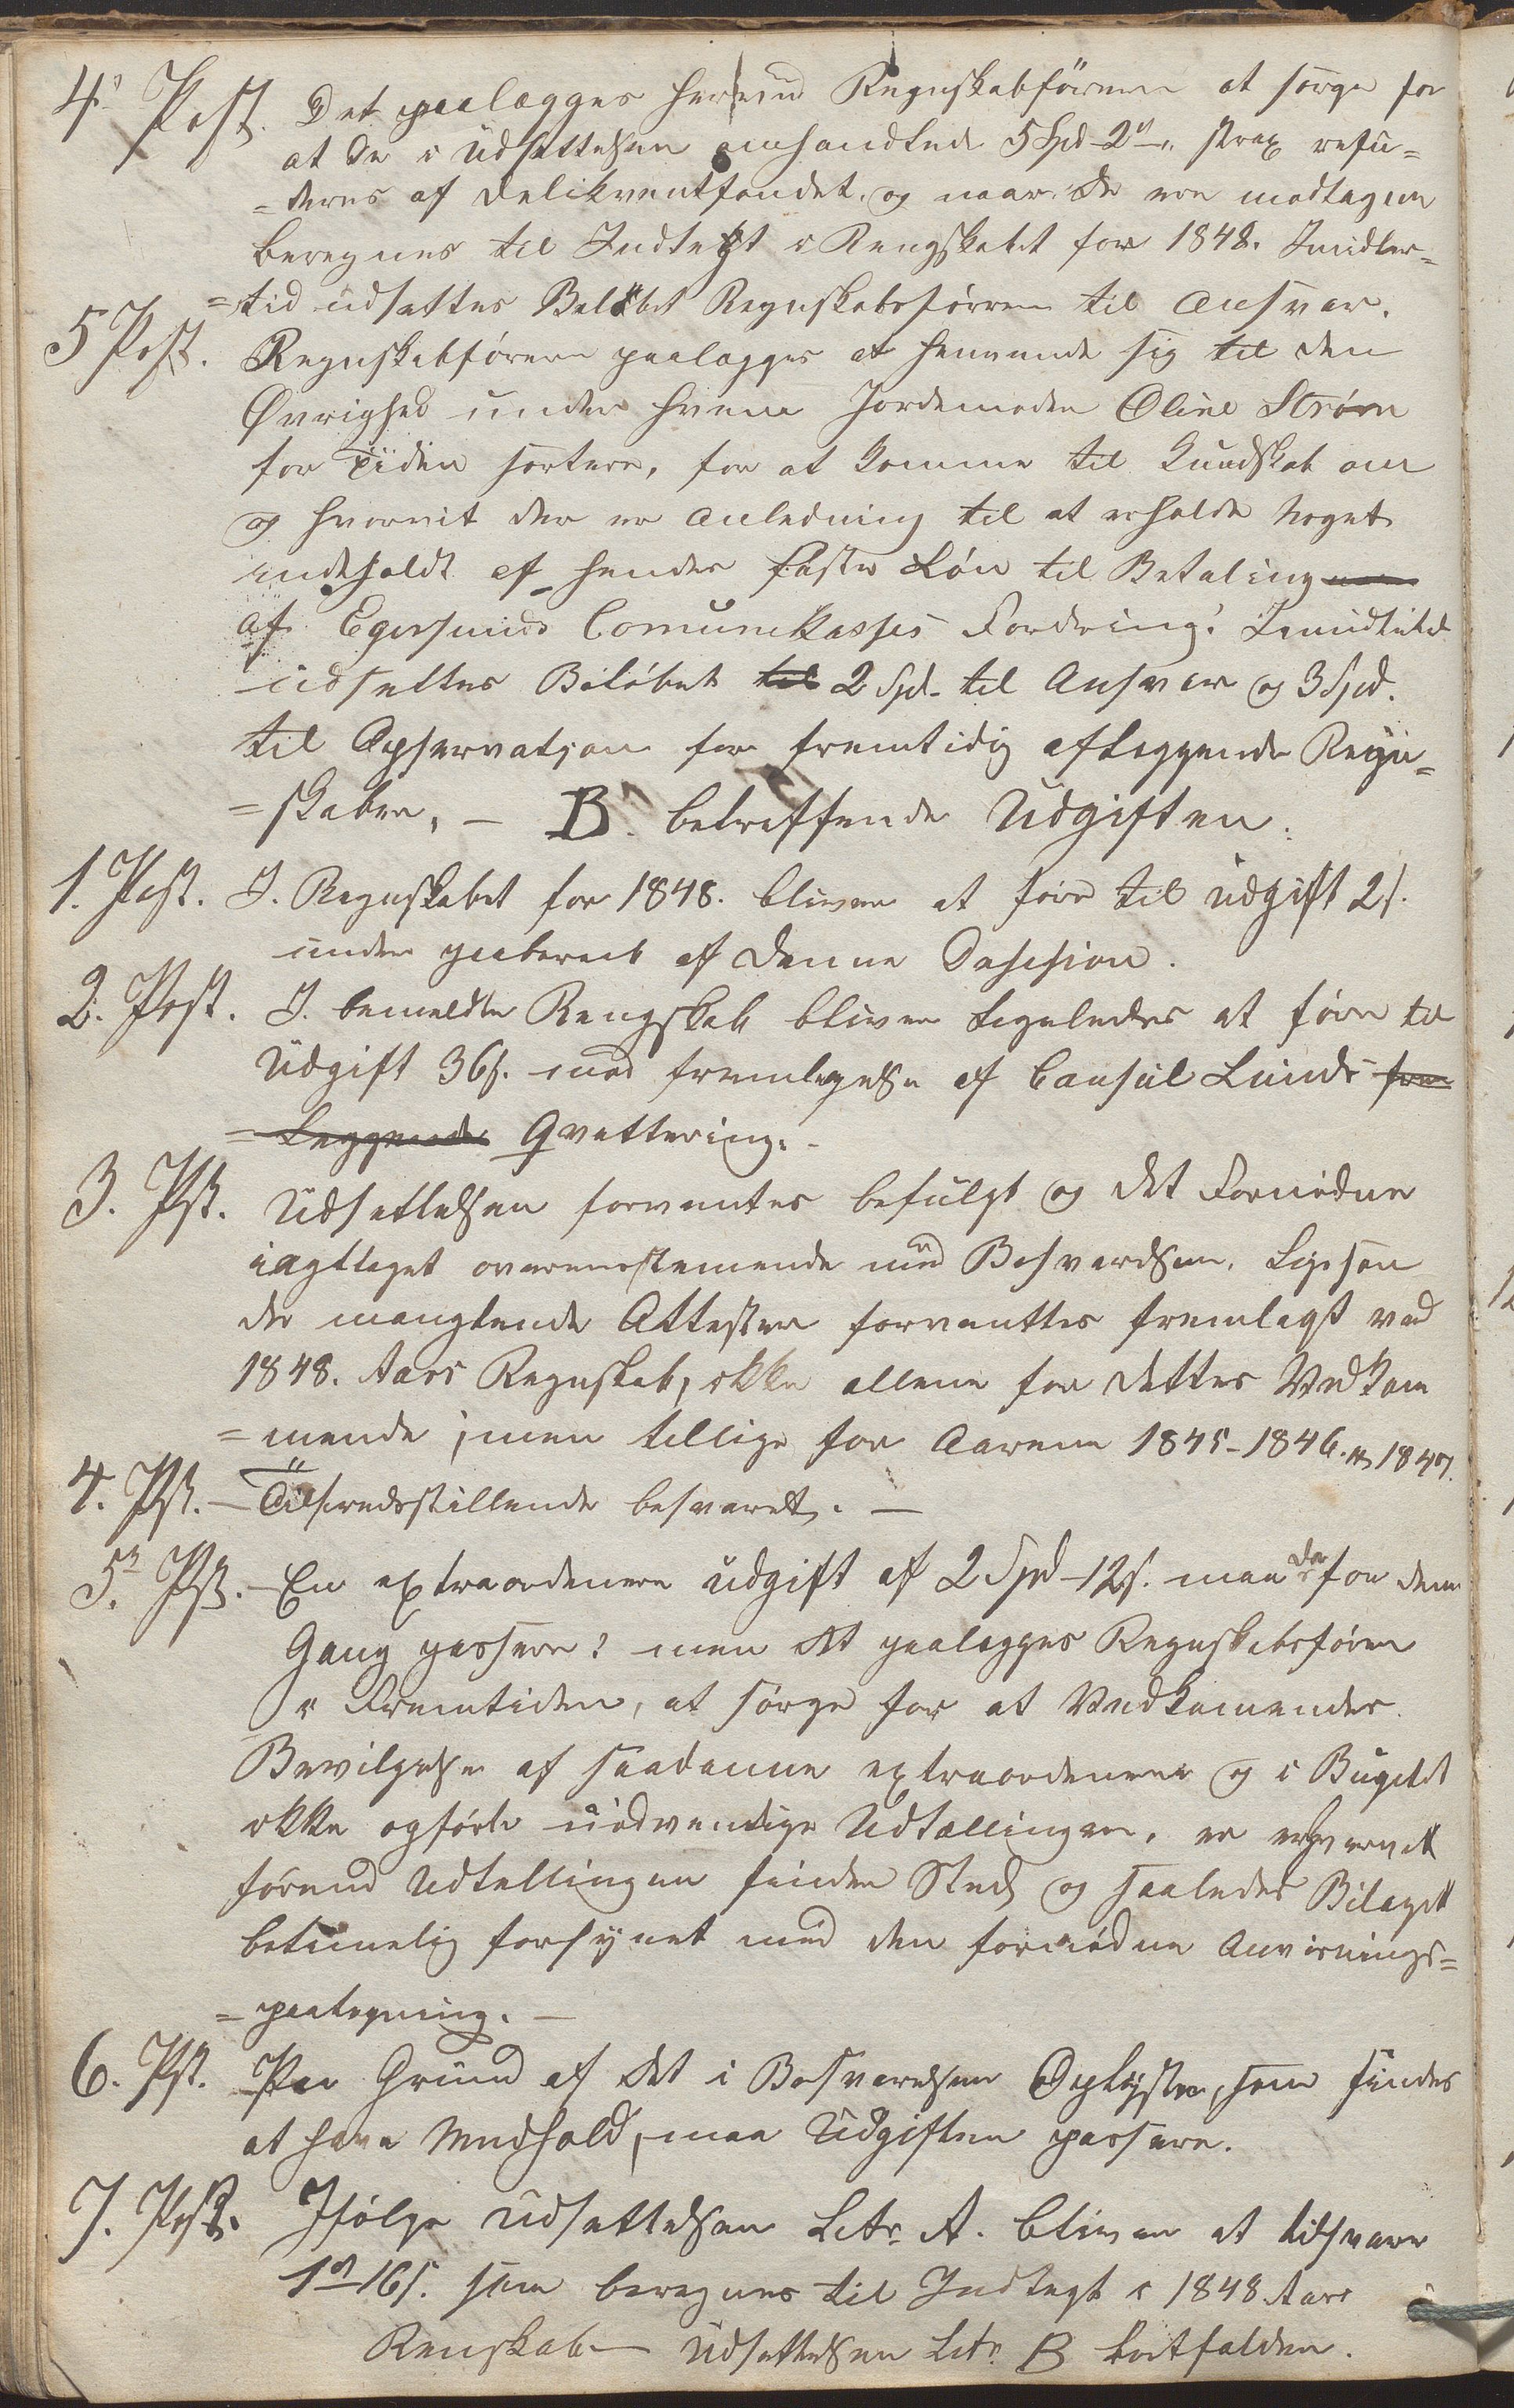 4' Post. Det paalægges herved Regnskabsføreren at sørge for
at de i Udsættelsen omhandlede 5 Spd - 2 strax refu=
=deres af Delikventfondet, og naar de ere modtagen
beregnes til Indtegt i Rengskabet for 1848. Imidler=
=tid udsættes Beløbet Regnskabsførren til Ansvar.
5 Post. Regnskabsføreren paalægges at henvende sig til den
Øvrighed under hvem Jordemoder Oline Strøm
for Tiden sortere, for at komme til Kundskab om
og hvorvit der er Anledning til at erholde noget
indeholdt af hendes faste Løn til Betaling
af Egersunds Comunekasses Fordring. Imidlertid
udsættes Beløbet til 2 Spd. til Ansvar og 3 Spd.
til Opservatjon for fremtidig aflæggende Regn=
=skaber. — B. betreffende Udgiften.
1. Post. I. Regnskabet for 1848. bliver at føre til udgift 2 s.
under paaberaab af denne Desesion.
2. Post. I. bemeldte Rengskab bliver Ligeledes at føre til
Udgift 36 s. med fremleggelse af Consul Lunds frem
=leggende Qvettering. -
3. Pst. Udsættelsen forventes befulgt og det Fornødne
iagttaget overensstemende med Besvarelsen. Ligesom
de manglende Attester forventtes fremlagt ved
1848. Aars Regnskab, ikke allene for dettes Vedkom
=mende, men tillige for Aarene 1845 - 1846. og 1847.
4. Pst. — Tilfredsstillende besvaret. —
5. Pst. — En extraordenere udgift af 2 Spd - 12 s. maa der for denne
Gang passere; men det paalægges Regnskabsføren
i Fremtiden, at sørge for at Vedkomendes
Bevilgelse af saadanne extraordenere og i Bugettet
ikke opførte nødvendige Udtællinger, er erhvervet
førend Udtellingen finder Sted, og saaledes Bilaget
betimelig forsynet med den fornødne Anvisnings=
= paategning. —
6. Pst. Paa Grund af det i Besvarelsen Oplyste, som findes
at have Medhold, maa Udgiften passere.
7. Post. Ifølge Udsættelsen Litr. A. bliver at tilsvare
1 16 s. som beregnes til Indtegt i 1848 Aars
Renskab — Udsættelsen Litr. B bortfalder.